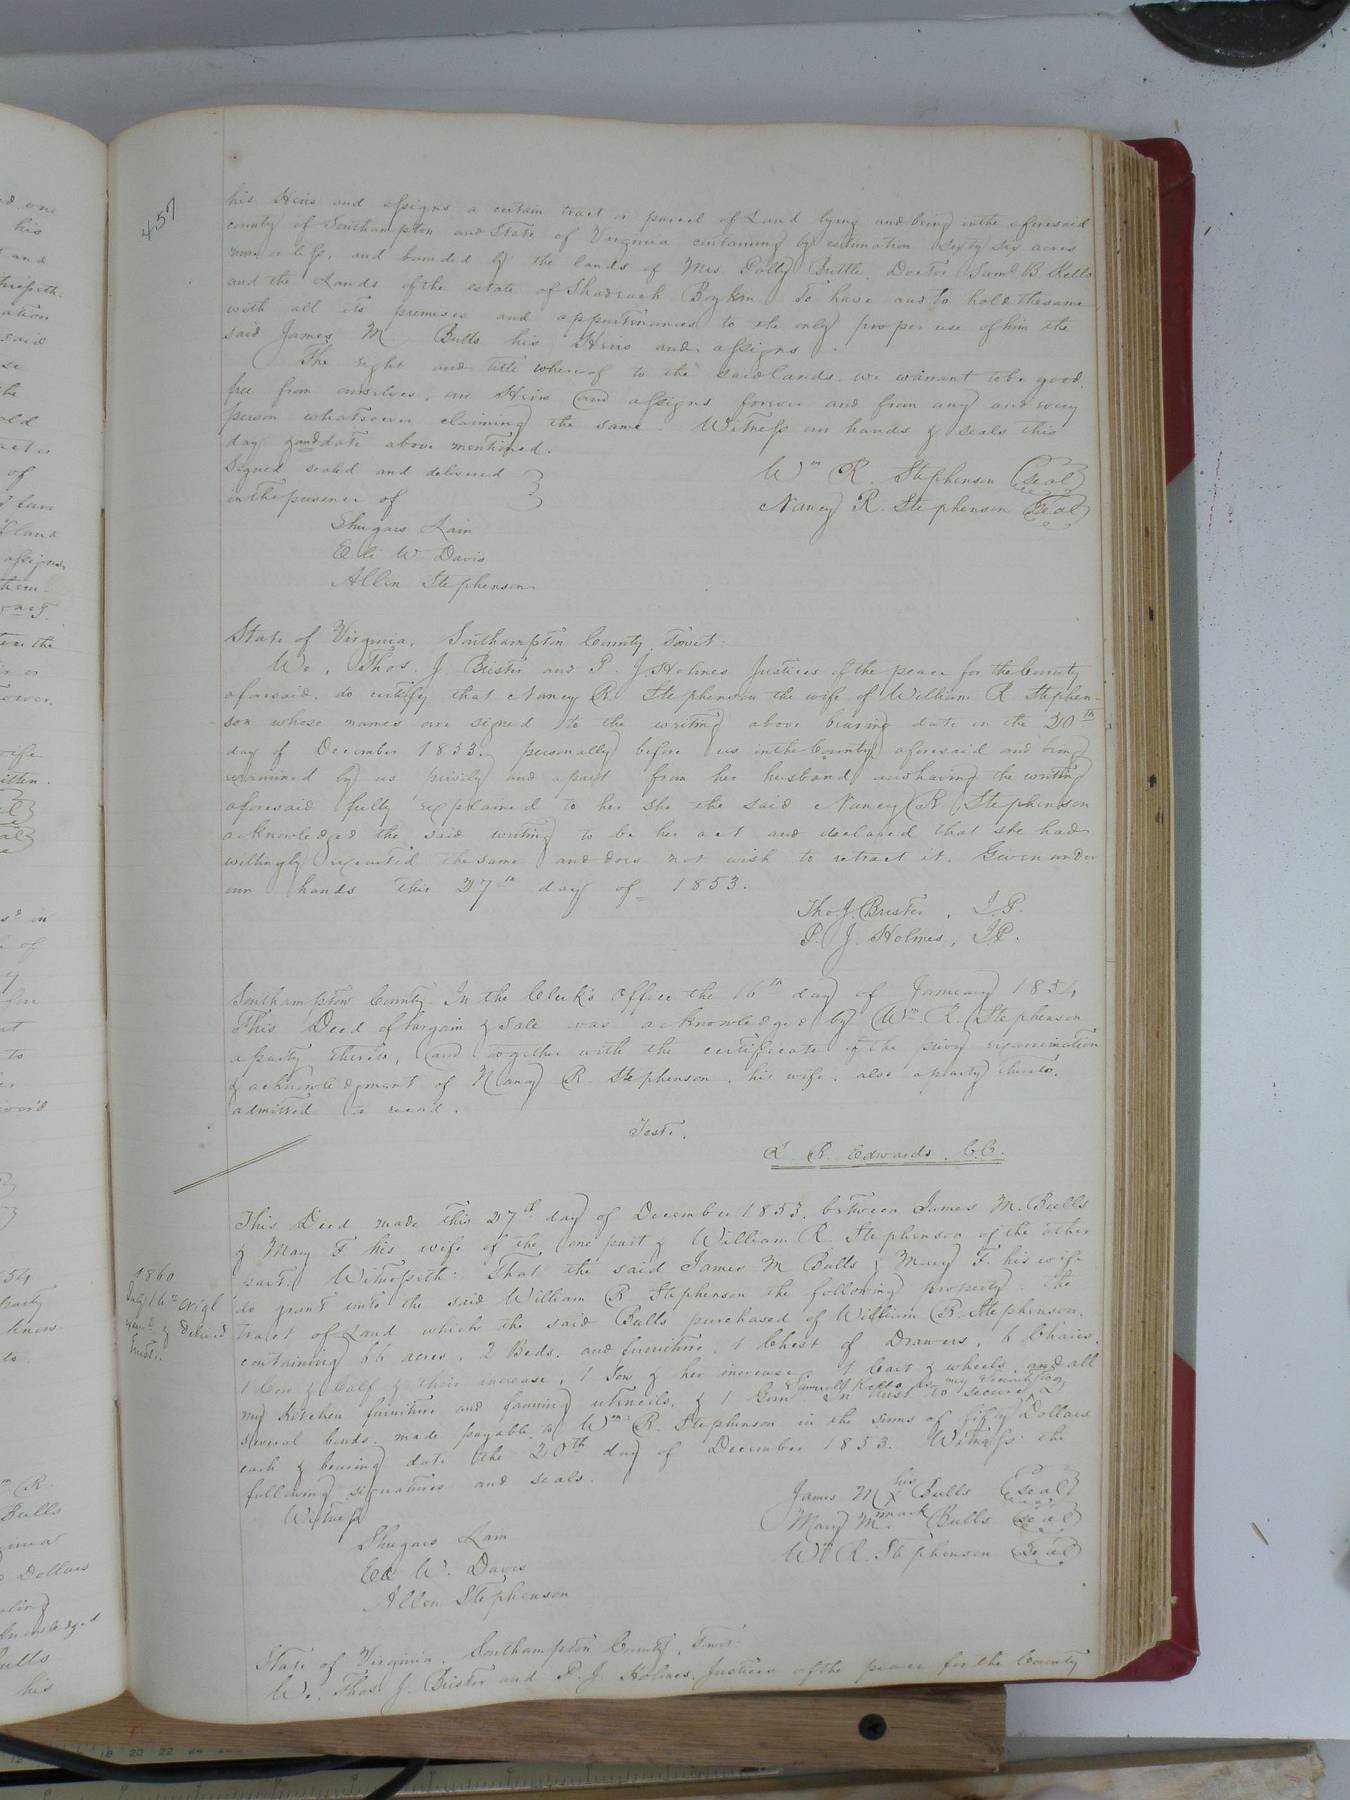 457
his Heirs and assigns a certain tract or parcel of Land lying and being in the aforesaid
county of Southampton and State of Virginia containing by estimation Sixty six acres
more or less, and bounded by the lands of Mrs. Polly Suttle, Doctor Saml B Kello
and the Lands of the estate of Shadrach Boykin To have and to hold the same
with all its premises and appurtenances to the only proper use of him the
said James M Bulls his Heirs and assigns.
The right and title whereof to the said lands we warrant to be good
free from ourselves, our Heirs and assigns forever and from any and every
person whatsoever claiming the same. Witness our hands & seals this
day and date above mentioned.
Signed sealed and delivered
in the presence of
Wm R. Stephenson (seal)
Nancy R. Stephenson (Seal)
Shugars Lain
Edi W Davis
Allen Stephenson
State of Virginia. Southampton County, Towit:
We, Thos. J Brister and P. J. Holmes Justices of the peace for the County
aforesaid, do certify that Nancy R. Stephenson the wife of William R Stephen-
son whose names are signed to the writing above bearing date on the 20th
day of December 1853, personally before us in the County aforesaid and being
examined by us privily and apart from her husband and having the writing
aforesaid fully explained to her she the said Nancy R. Stephenson
acknowledged the said writing to be her act and declared that she had
willingly executed the same and does not wish to retract it. Given under
our hands this 27th day of 1853.
Tho J. Brister, J.P.
P. J. Holmes, J.P.
Southampton County. In the Clerk's Office the 16th day of January 1854
This Deed of bargain & sale was acknowledged by Wm. R. Stephenson
a party thereto, and together with the certificate of the privy examination
& acknowledgment of Nancy R. Stephenson, his wife, also a party thereto,
admitted to record.
Teste.
L R. Edwards, C.C.
This Deed made this 27th day of December 1853, between James M. Bulls
& Mary F his wife of the one part & William R. Stephenson of the other
part. Witnesseth: That the said James M Bulls & Mary F. his wife
1860
July 16th origl
do grant unto the said William R Stephenson the following property. The
& delivered
tract of Land which the said Bulls purchased of William R. Stephenson,
containing 66 acres, 2 Beds, and furniture, 1 Chest of Drawers, 6 Chairs,
1 Cow & Calf & their increase, 1 Sow & her increase 1 Cart & wheels, and all
& Samuel Kello as my security
my Kitchen furniture and farming utensils, & 1 Gun In trust to secure
several bonds, made payable to Wm R. Stephenson in the sums of fifty Dollars
each & bearing date the 20th day of December 1853. Witness the
following signatures and seals.
Witness
James M his x Bulls (seal)
Mary M. mark Bulls (seal)
Wm R. Stephenson (Seal)
Shugars Lain
Ed W. Davis
Allen Stephenson
State of Virginia. Southampton County, Towit:
We, Thos J. Brister and P. J Holmes, Justices of the peace for the County